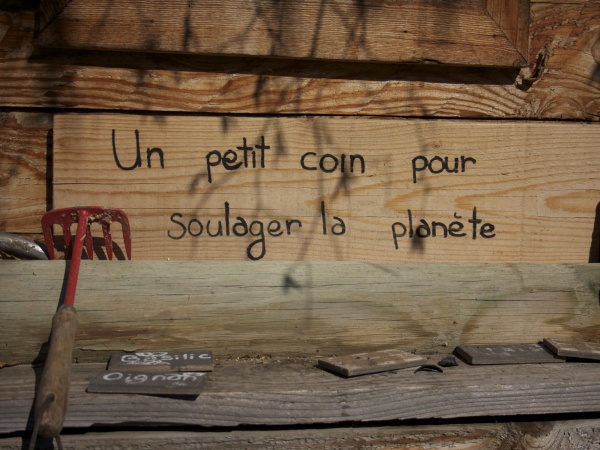 Un petit coin pour
soulager la planète
Oignon